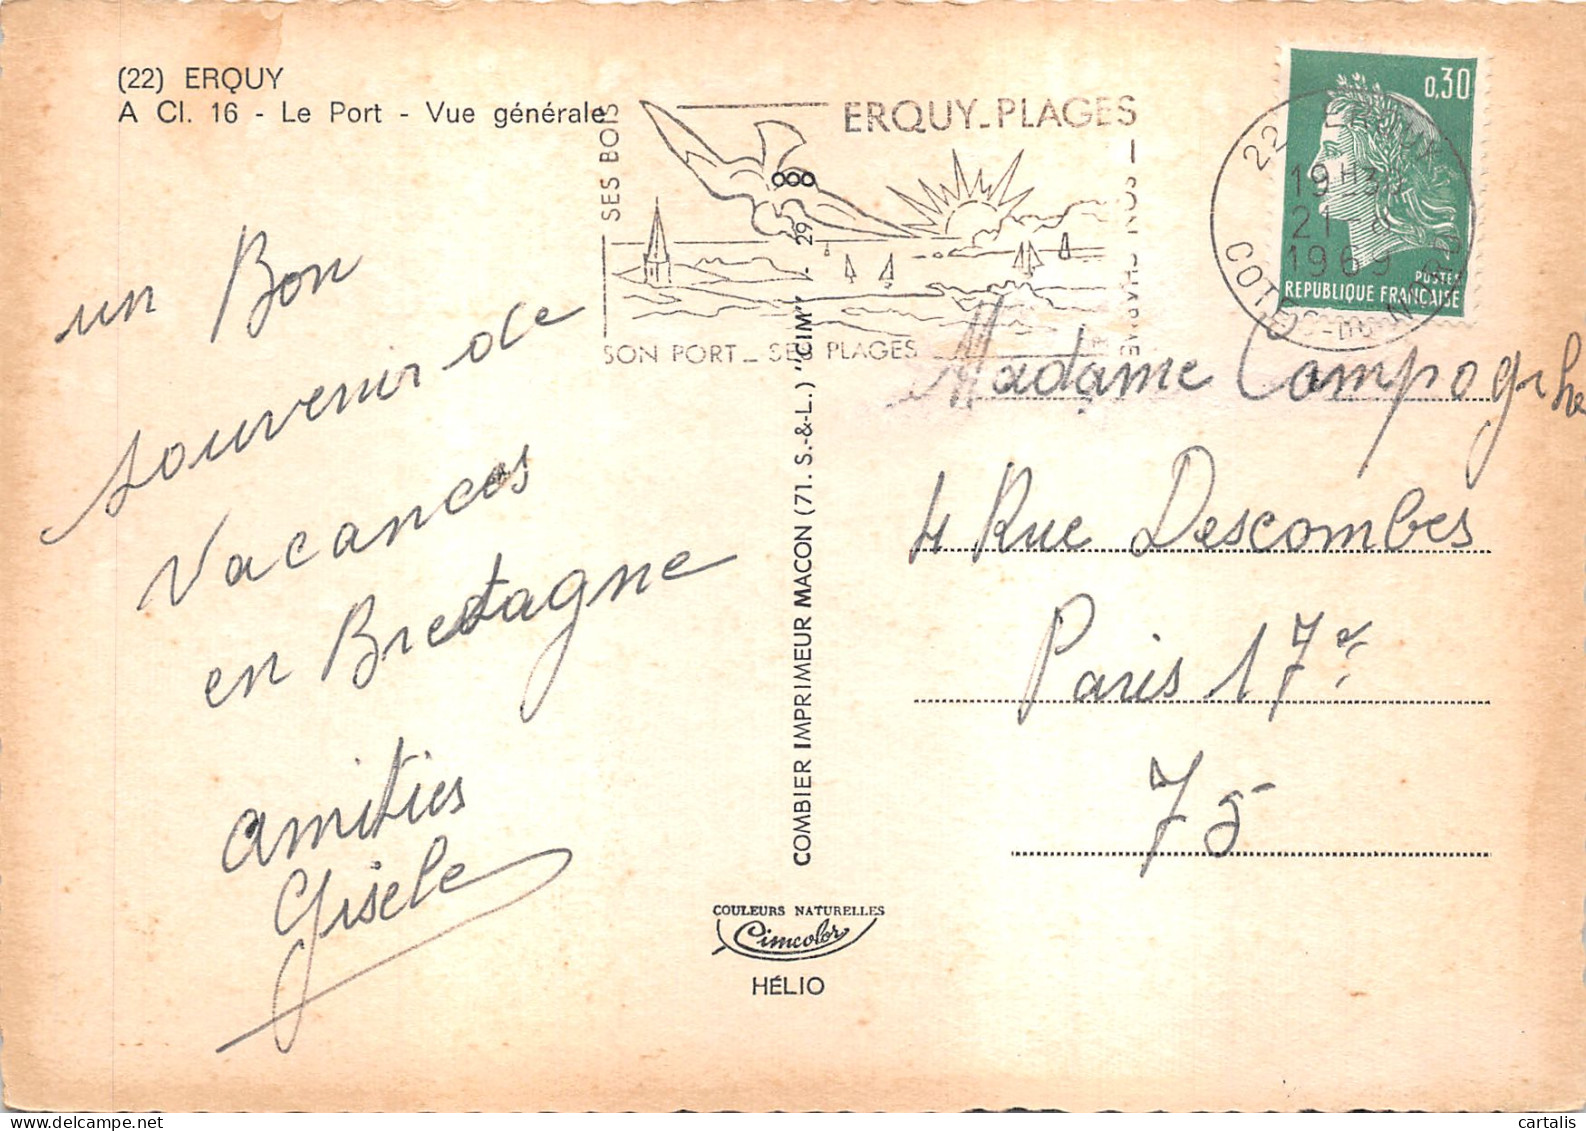 (22) ERQUY
A Cl. 16 - Le Port - Vue générale
SES BOIS
ERQUY_PLAGES
SON PORT _ SES PLAGES
SON CHARME
22 ERQUY
19H30
21-8
1969
COTES-DU-NORD
0,30
POSTES
REPUBLIQUE FRANÇAISE
un Bon
souvenir de
Vacances
en Bretagne
amitiés
Gisèle
COMBIER IMPRIMEUR MACON (71. S.-&-L.) "CIM" - 29
COULEURS NATURELLES
Cimcolor
HÉLIO
Madame Campogrhe
4 Rue Descombes
Paris 17e
75
cartalis